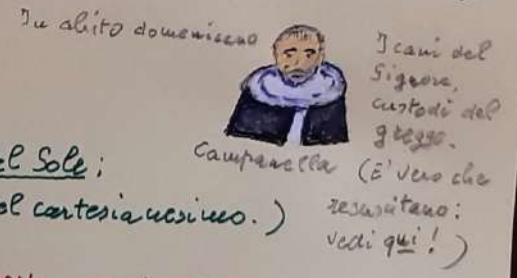 In abito domenicano
I cani del
Signore,
custodi del
gregge.
(E' vero che
resuscitano:
vedi qui!)
Campanella
el Sole;
el cartesianesimo.)